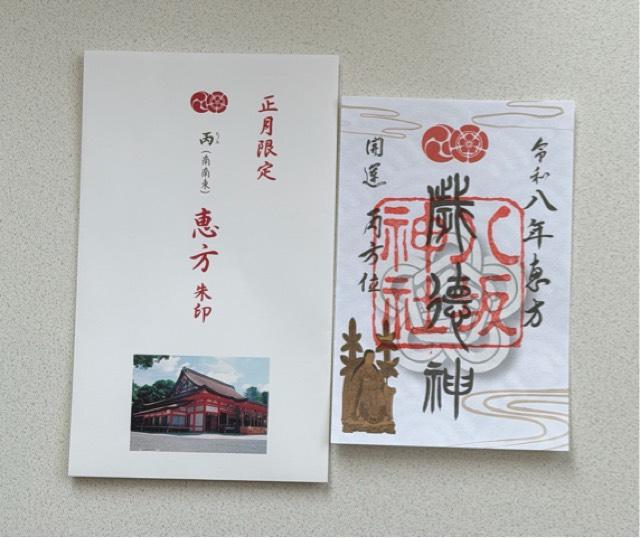 正月限定
丙(南南東)
ひのえ
恵方 朱印
令和八年恵方
歳徳神
八坂
神社
開運 丙方位